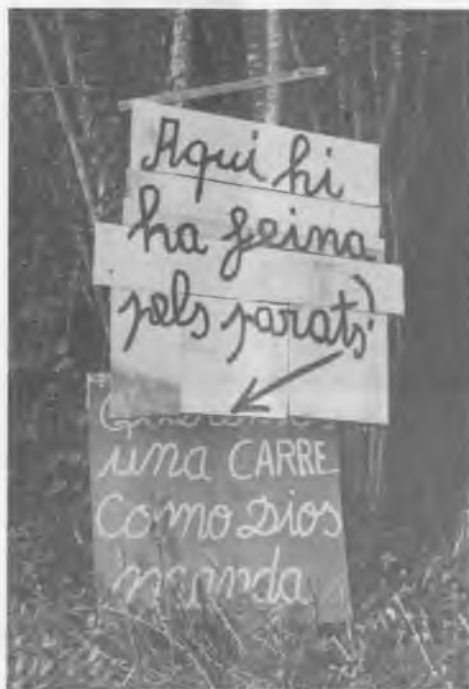 Aqui hi
ha feina
pels parats
una CARRE
como Dios
manda